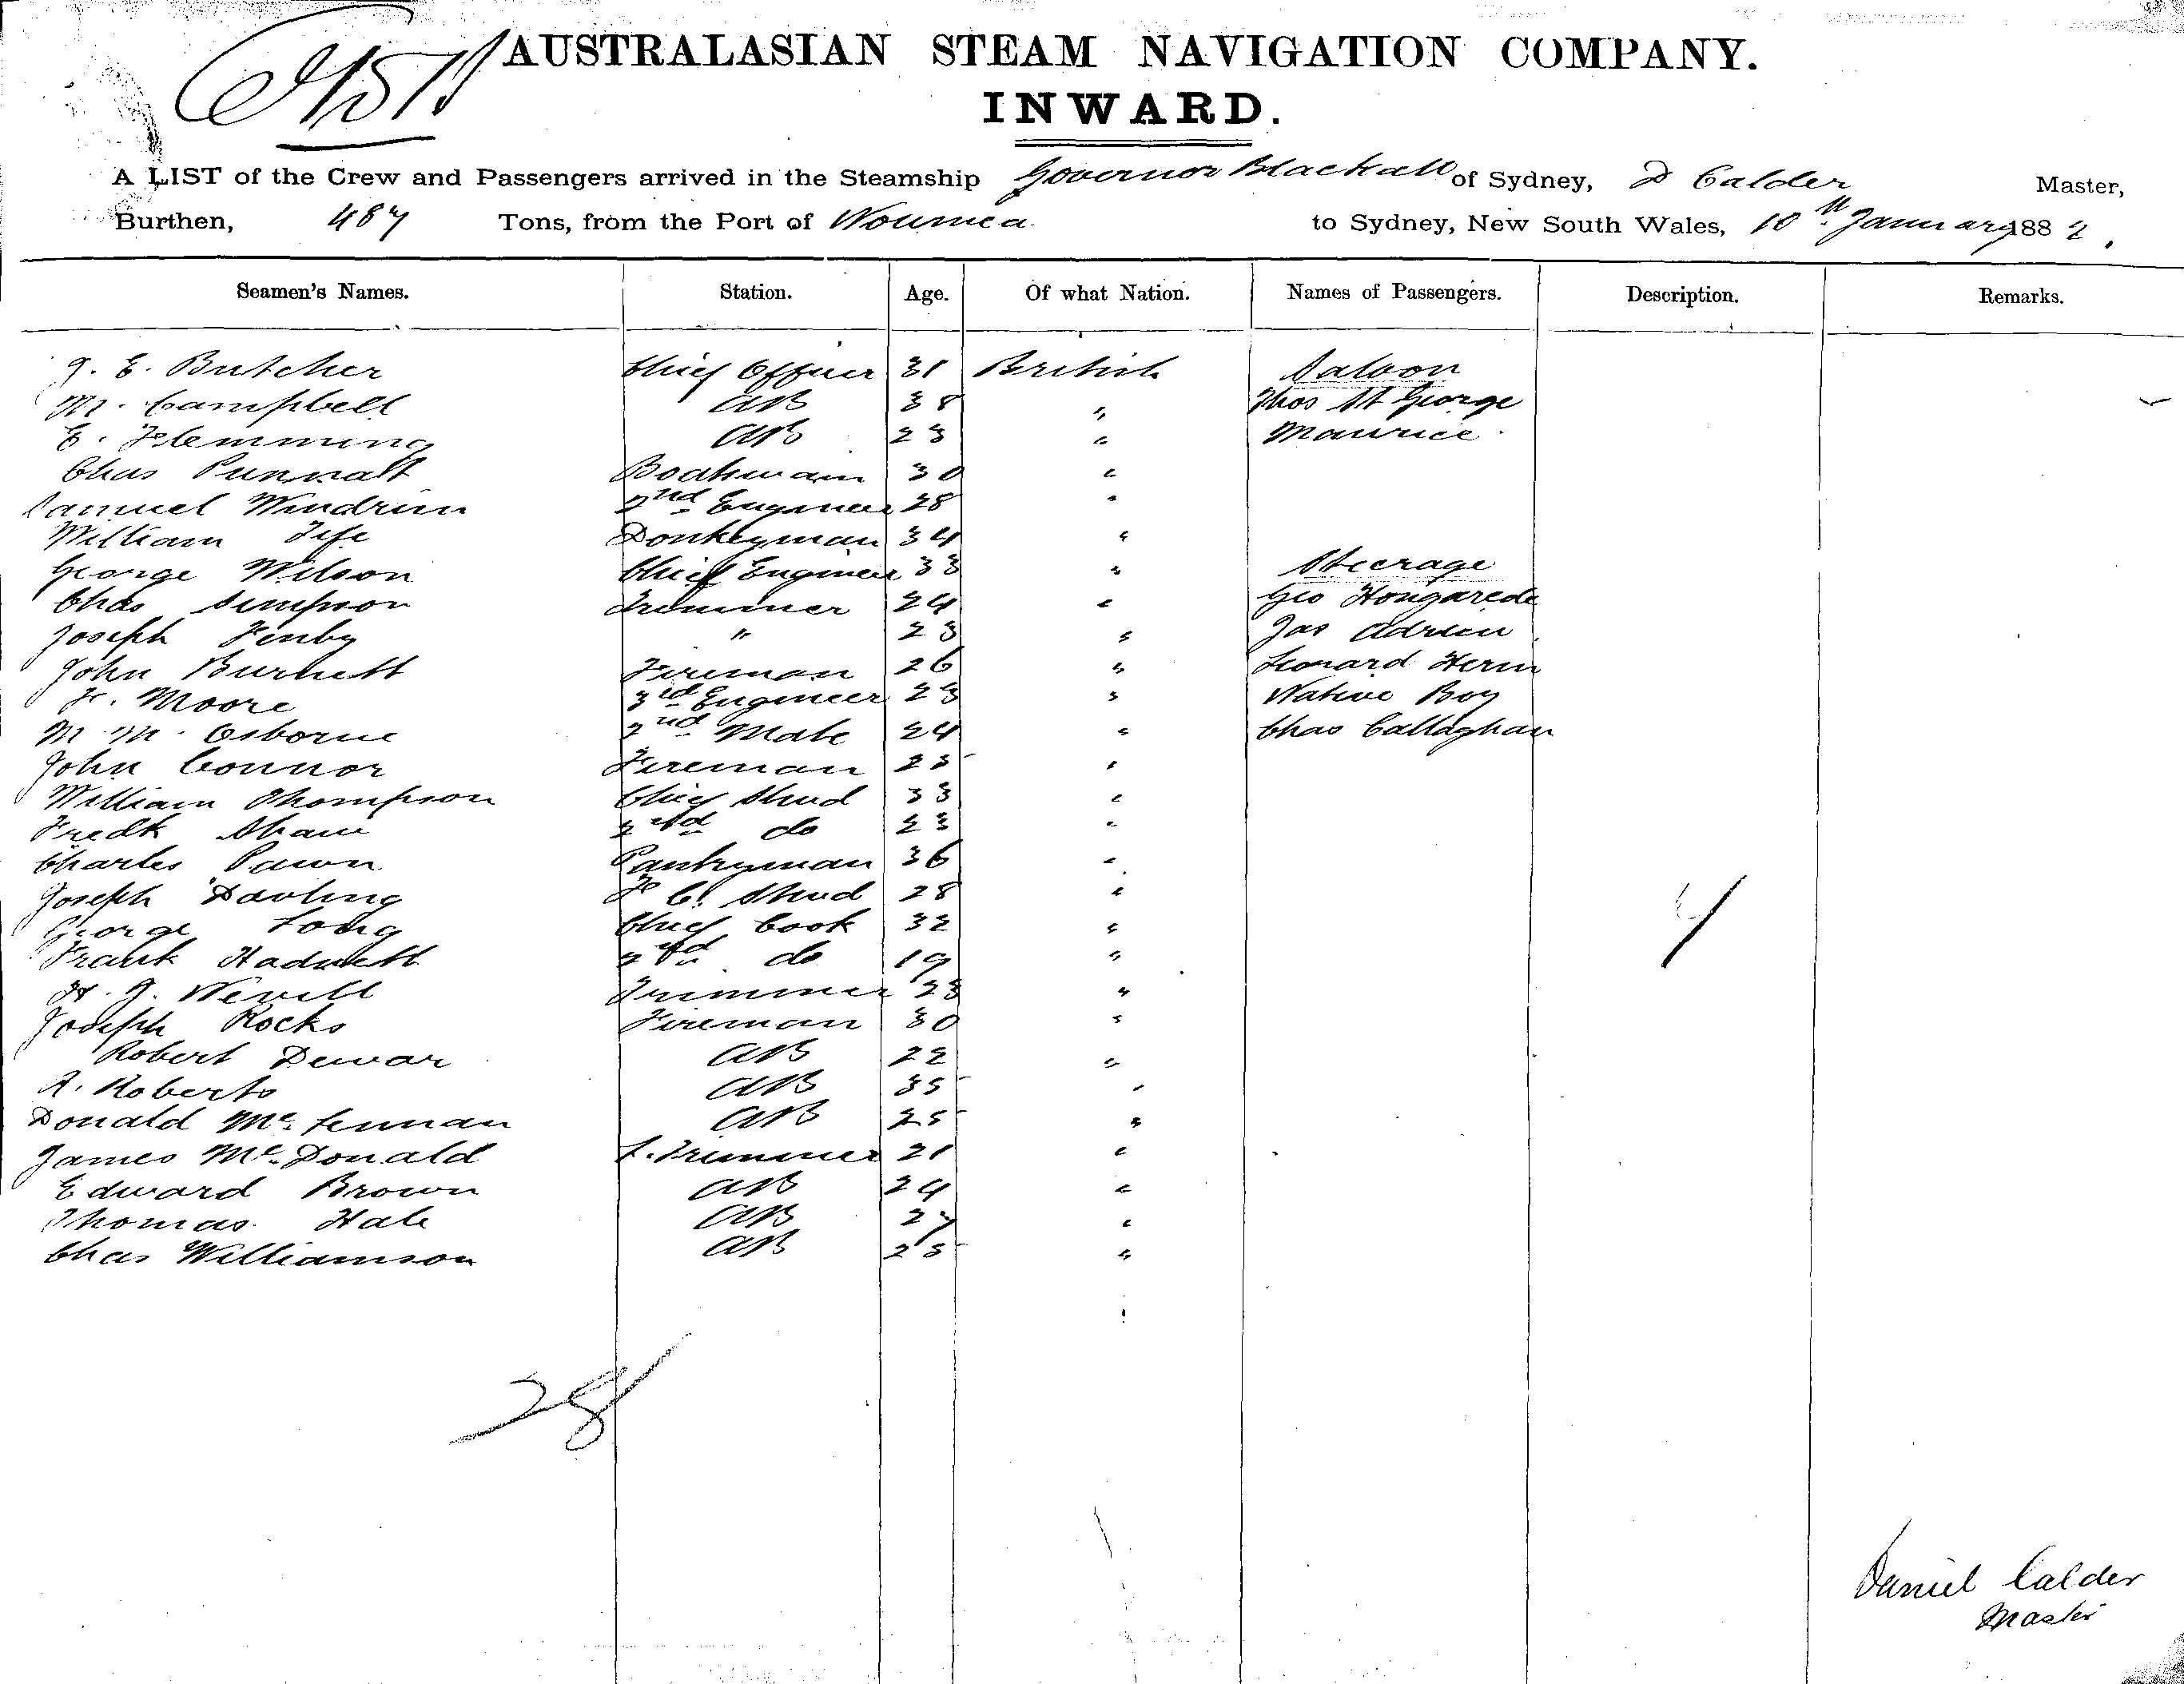 AUSTRALASIAN STEAM NAVIGATION COMPANY.
INWARD.
A LIST of the Crew and Passengers arrived in the Steamship Governor Blackall of Sydney, D Calder Master,
Burthen, 487 Tons, from the Port of Noumea to Sydney, New South Wales, 10th January 1882.
Seamen's Names. Station. Age. Of what Nation. Names of Passengers. Description. Remarks.
J. E. Butcher Chief Officer 31 British Saloon
M. Campbell AB 38 " Thos St George
E. Flemming AB 23 " Maurice
Chas Punnatt Boatswain 30 "
Samuel Windrim 2nd Engineer 28 "
William Fife Donkeyman 34 "
George Wilson Chief Engineer 33 " Steerage
Chas Simpson Trimmer 24 " Geo Hongarede
Joseph Fenby " 23 " Jas Adrien
John Burnett Fireman 26 " Leonard Herm
F. Moore 3rd Engineer 23 " Native Boy
M. M. Osborne 2nd Mate 24 " Chas Callaghan
John Connor Fireman 25 "
William Thompson Chief Stwd 33 "
Fredk Shaw 2nd do 23 "
Charles Pawn Pantryman 36 "
Joseph Darling F C. Stwd 28 " 7
George Long Chief Cook 32 "
Frank Hadnett 2nd do 19 "
H. J. Nevill Trimmer 23 "
Joseph Rocks Fireman 30 "
Robert Dewar AB 22 "
A. Roberts AB 35 "
Donald Mc. Lennan AB 25 "
James Mc. Donald L. Trimmer 21 "
Edward Brown AB 24 "
Thomas Hale AB 27 "
Chas Williamson AB 25 "
28
Daniel Calder
Master